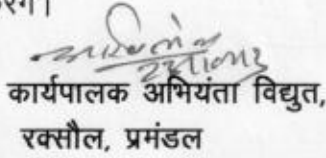 करेंगे।
कार्यपालक अभियंता विद्युत,
रक्सौल, प्रमंडल